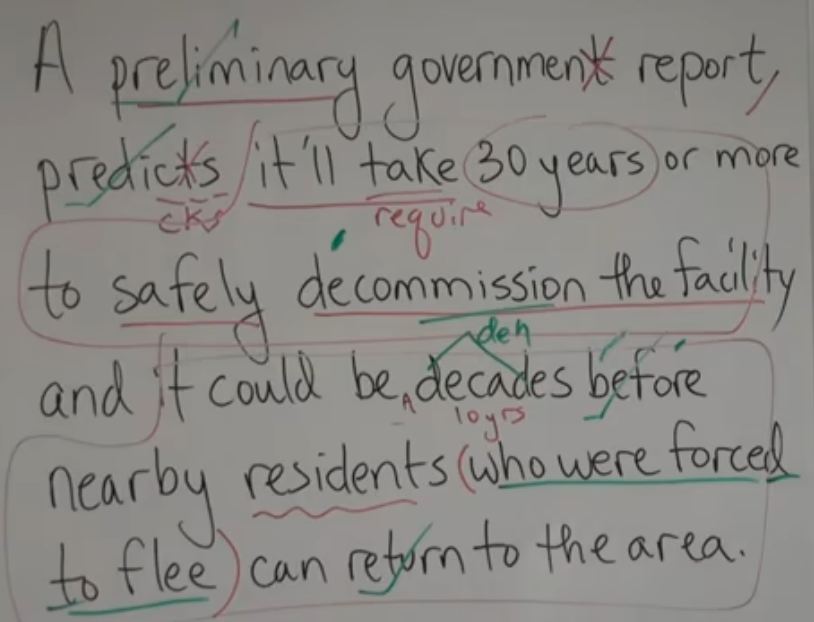 A preliminary government report,
predicts it'll take 30 years or more
cks require
to safely decommission the facility
deh
and it could be decades before
10 yrs
nearby residents (who were forced
to flee) can return to the area.